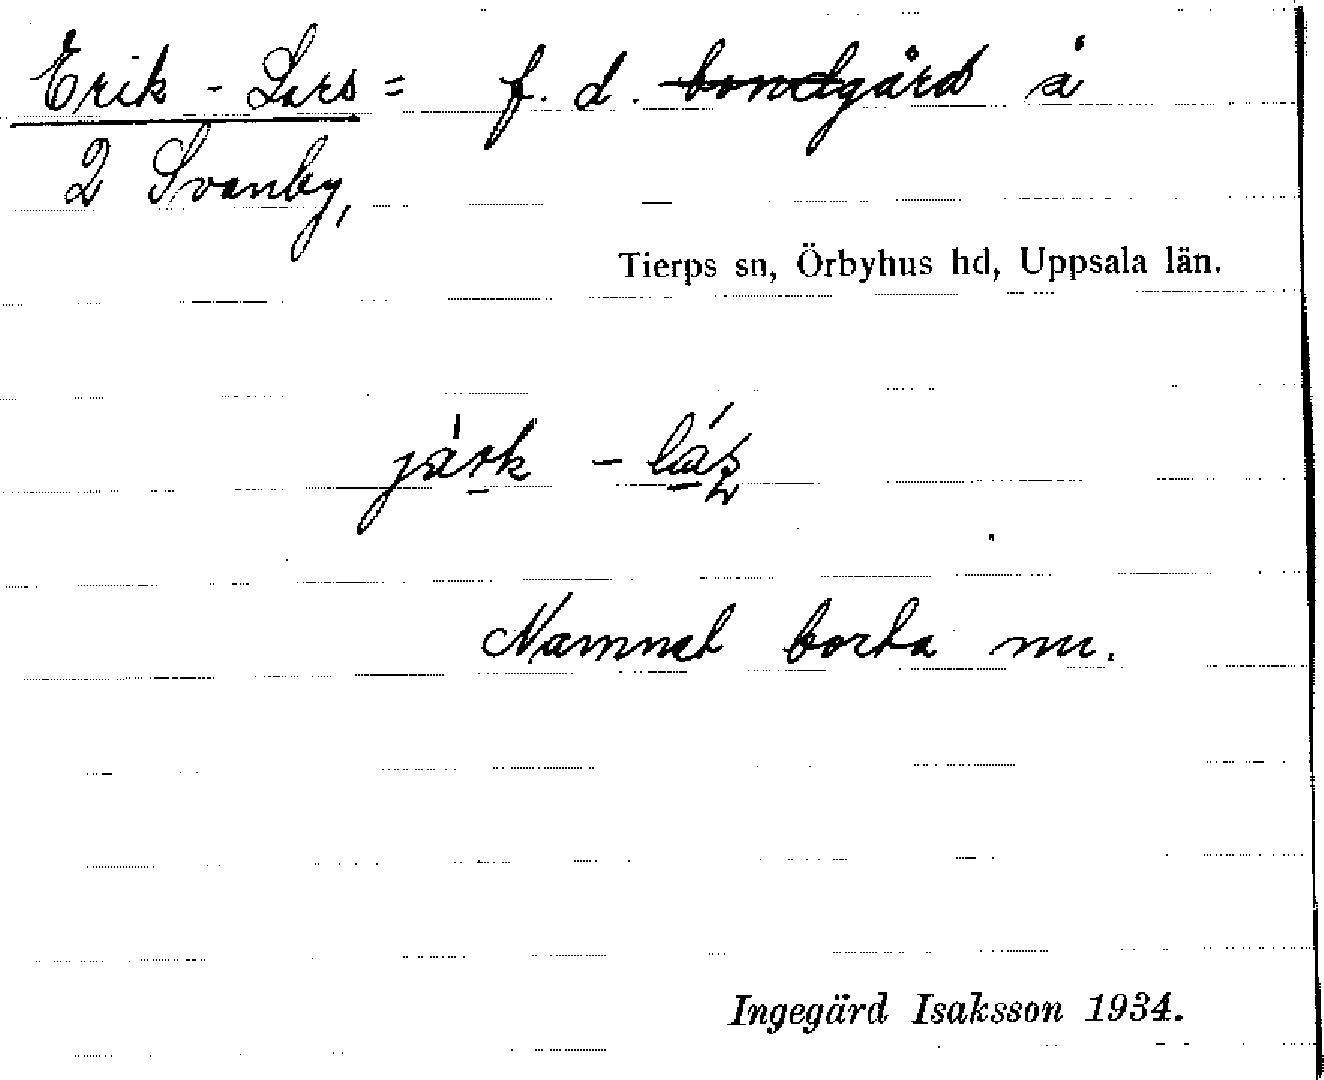 Erik - Lars = f. d. bondgård å
2 Svanby,
Tierps sn, Örbyhus hd, Uppsala län.
Namnet borta nu.
Ingegärd Isaksson 1934.